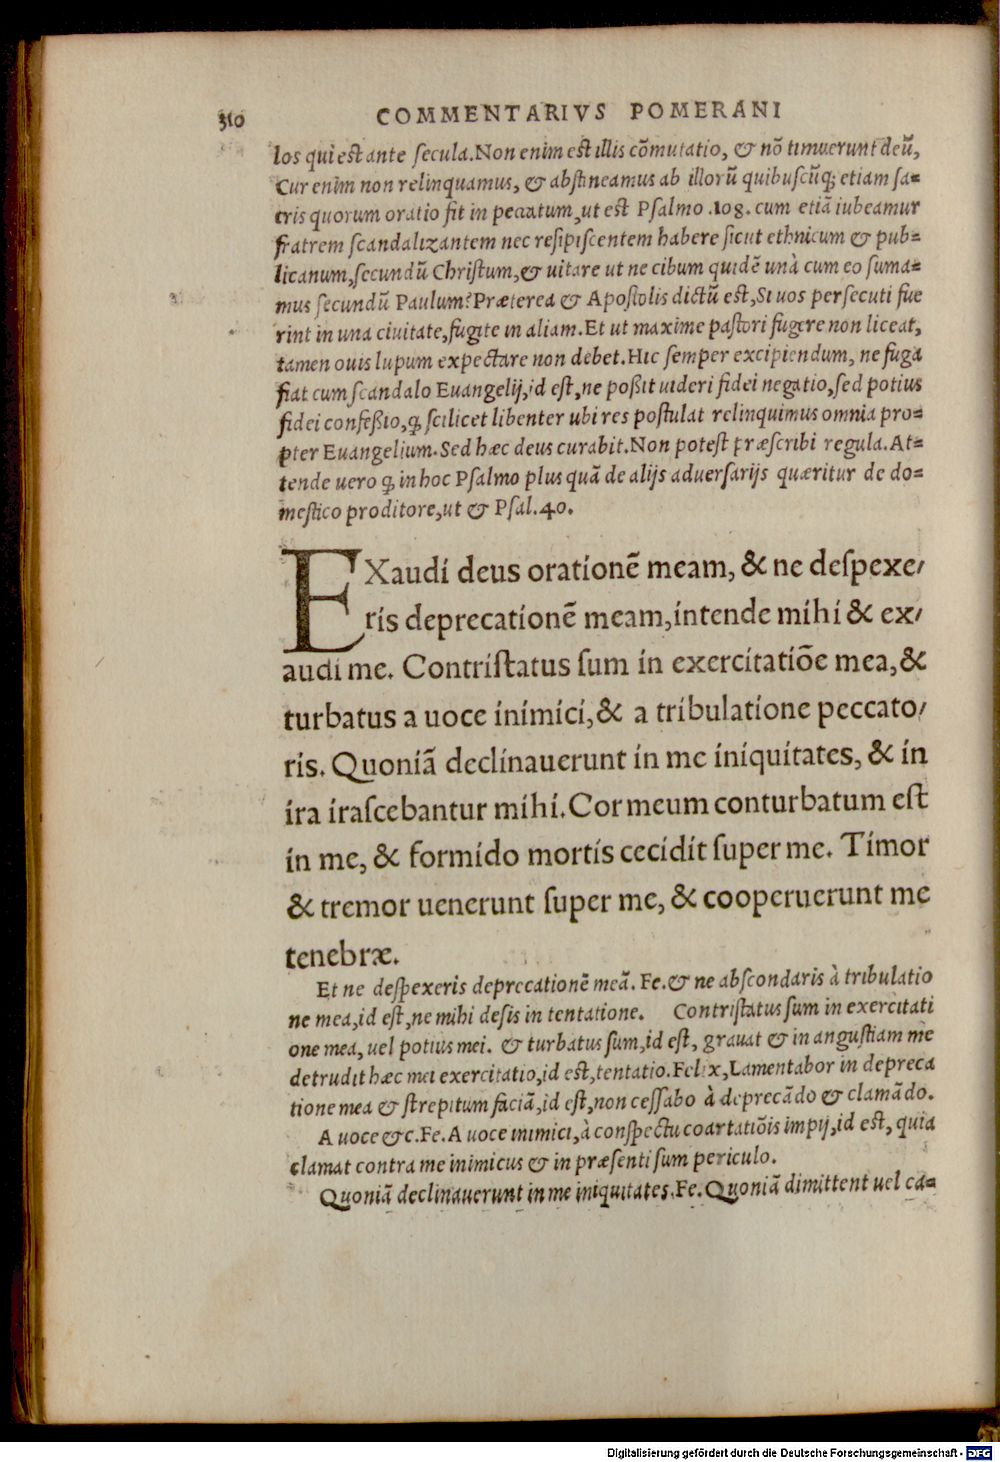 310 COMMENTARIVS POMERANI
los qui est ante secula. Non enim est illis cõmutatio, & nõ timuerunt deũ,
Cur enim non relinquamus, & abstineamus ab illorũ quibuscũq; etiam sa=
cris quorum oratio fit in peccatum, ut est Psalmo .108. cum etiã iubeamur
fratrem scandalizantem nec resipiscentem habere sicut ethnicum & pub=
licanum, secundũ Christum, & uitare ut ne cibum quidẽ unà cum eo suma=
mus secundũ Paulum? Præterea & Apostolis dictũ est, Si uos persecuti fue
rint in una ciuitate, fugite in aliam. Et ut maxime pastori fugere non liceat,
tamen ouis lupum expectare non debet. Hic semper excipiendum, ne fuga
fiat cum scandalo Euangelij, id est, ne poßit uideri fidei negatio, sed potius
fidei confeßio, q; scilicet libenter ubi res postulat relinquimus omnia pro=
pter Euangelium. Sed hæc deus curabit. Non potest præscribi regula. At=
tende uero q; in hoc Psalmo plus quã de alijs aduersarijs quæritur de do=
mestico proditore, ut & Psal. 40.
EXaudi deus orationẽ meam, & ne despexe/
ris deprecationẽ meam, intende mihi & ex/
audi me. Contristatus sum in exercitatiõe mea, &
turbatus a uoce inimici, & a tribulatione peccato/
ris. Quoniã declinauerunt in me iniquitates, & in
ira irascebantur mihi. Cor meum conturbatum est
in me, & formido mortis cecidit super me. Timor
& tremor uenerunt super me, & cooperuerunt me
tenebræ.
Et ne despexeris deprecationẽ meã. Fe. & ne abscondaris à tribulatio
ne mea, id est, ne mihi desis in tentatione. Contristatus sum in exercitati
one mea, uel potius mei. & turbatus sum, id est, grauat & in angustiam me
detrudit hæc mei exercitatio, id est, tentatio. Felix, Lamentabor in depreca
tione mea & strepitum faciã, id est, non cessabo à deprecãdo & clamãdo.
A uoce &c. Fe. A uoce inimici, à conspectu coartatiõis impij, id est, quia
clamat contra me inimicus & in præsenti sum periculo.
Quoniã declinauerunt in me iniquitates. Fe. Quoniã dimittent uel ca=
Digitalisierung gefördert durch die Deutsche Forschungsgemeinschaft - DFG